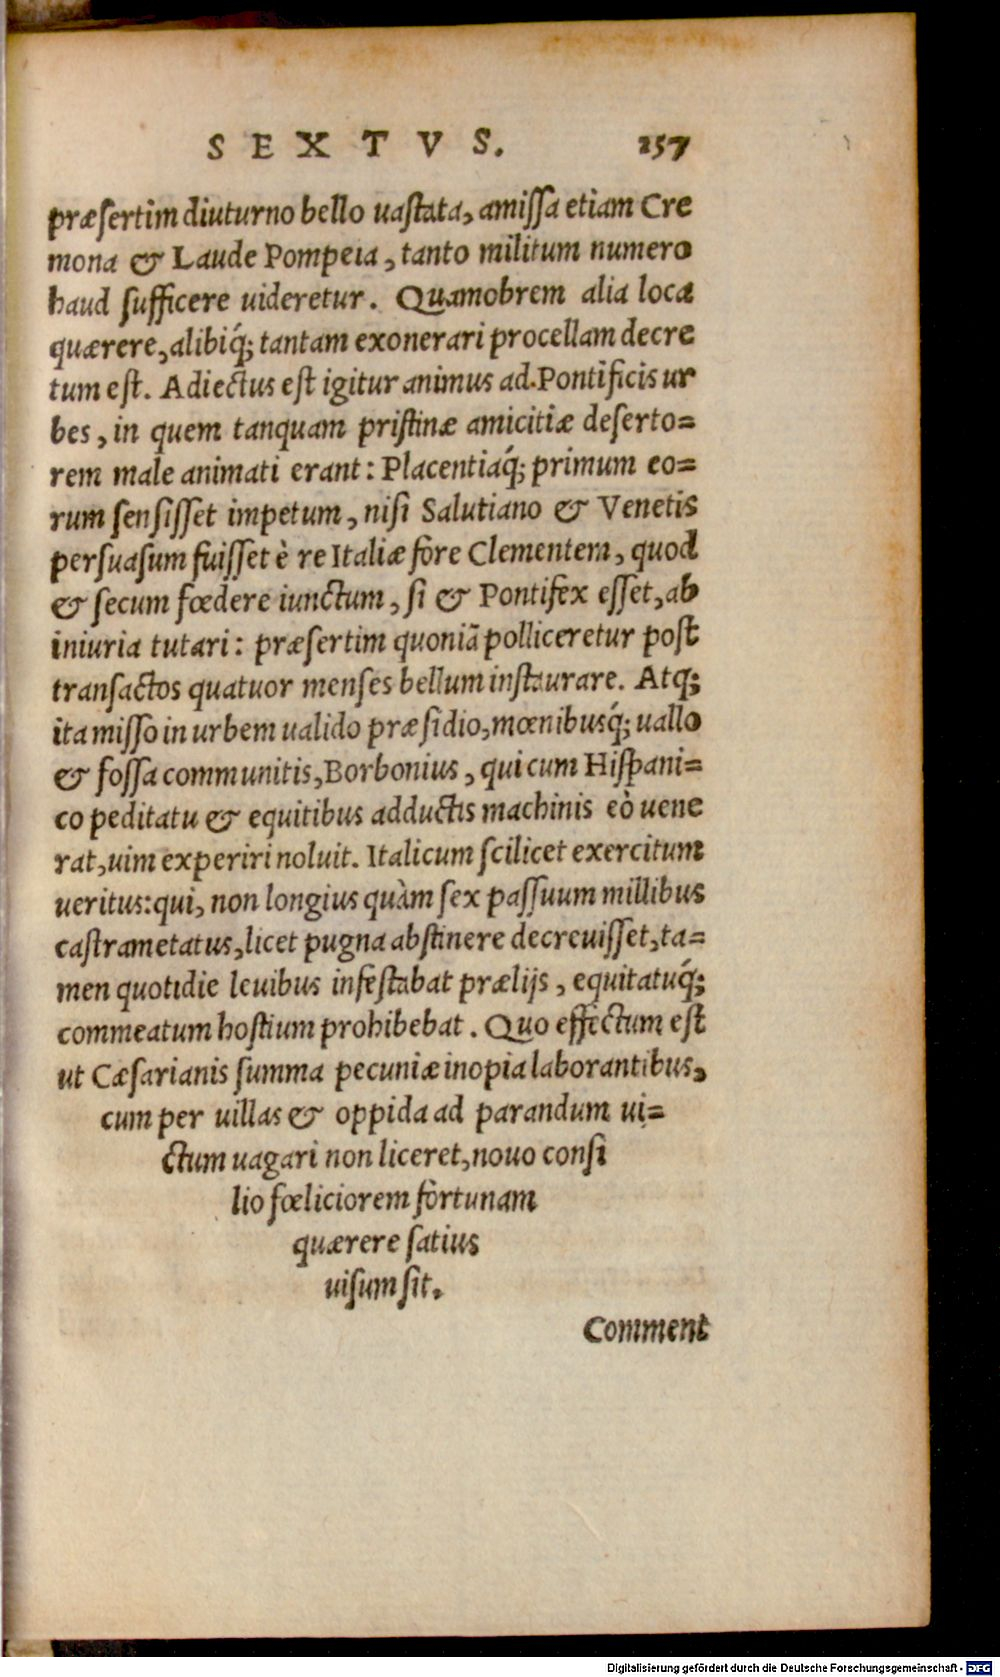 SEXTVS. 157
præsertim diuturno bello uastata, amissa etiam Cre
mona & Laude Pompeia, tanto militum numero
haud sufficere uideretur. Quamobrem alia loca
quærere, alibiq́; tantam exonerari procellam decre
tum est. Adiectus est igitur animus ad Pontificis ur
bes, in quem tanquam pristinæ amicitiæ deserto=
rem male animati erant: Placentiaq́; primum eo=
rum sensisset impetum, nisi Salutiano & Venetis
persuasum fuisset è re Italiæ fore Clementem, quod
& secum fœdere iunctum, si & Pontifex esset, ab
iniuria tutari: præsertim quoniã polliceretur post
transactos quatuor menses bellum instaurare. Atq;
ita misso in urbem ualido præsidio, mœnibusq́; uallo
& fossa communitis, Borbonius, qui cum Hispani=
co peditatu & equitibus adductis machinis eò uene
rat, uim experiri noluit. Italicum scilicet exercitum
ueritus: qui, non longius quàm sex passuum millibus
castrametatus, licet pugna abstinere decreuisset, ta=
men quotidie leuibus infestabat prælijs, equitatuq́;
commeatum hostium prohibebat. Quo effectum est
ut Cæsarianis summa pecuniæ inopia laborantibus,
cum per uillas & oppida ad parandum ui=
ctum uagari non liceret, nouo consi
lio fœliciorem fortunam
quærere satius
uisum sit.
Comment
Digitalisierung gefördert durch die Deutsche Forschungsgemeinschaft - DFG